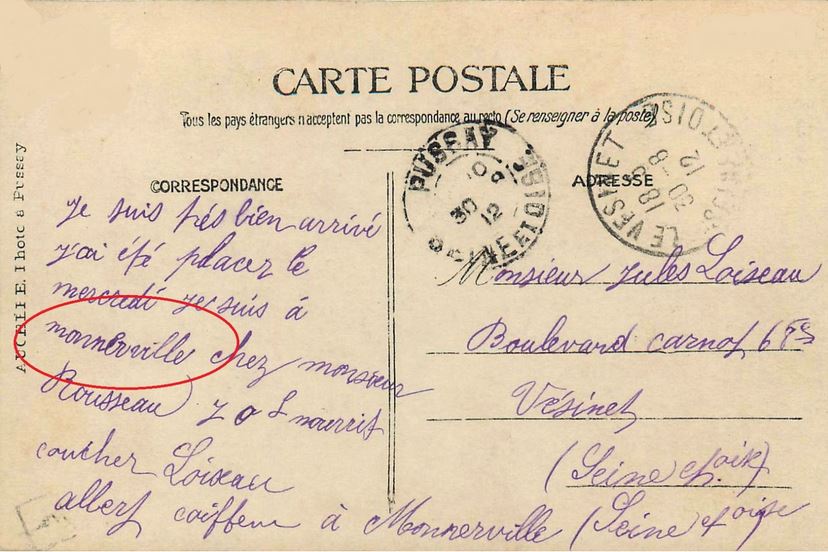 CARTE POSTALE
Tous les pays étrangers n'acceptent pas la correspondance au recto (Se renseigner à la poste)
CORRESPONDANCE
ADRESSE
PUSSAY
SEINE ET OISE
30
12
LE VESINET
SEINE ET OISE
18
30
12
Je suis très bien arrivé
j'ai été placer le
mercredi je suis à
monnerville chez monsieur
Rousseau
nourrit
coucher Loiseau
albert coiffeur à Monnerville (Seine et oise
Monsieur Jules Loiseau
Boulevard carnot
Vésinet
(Seine et oise)
à Pussay